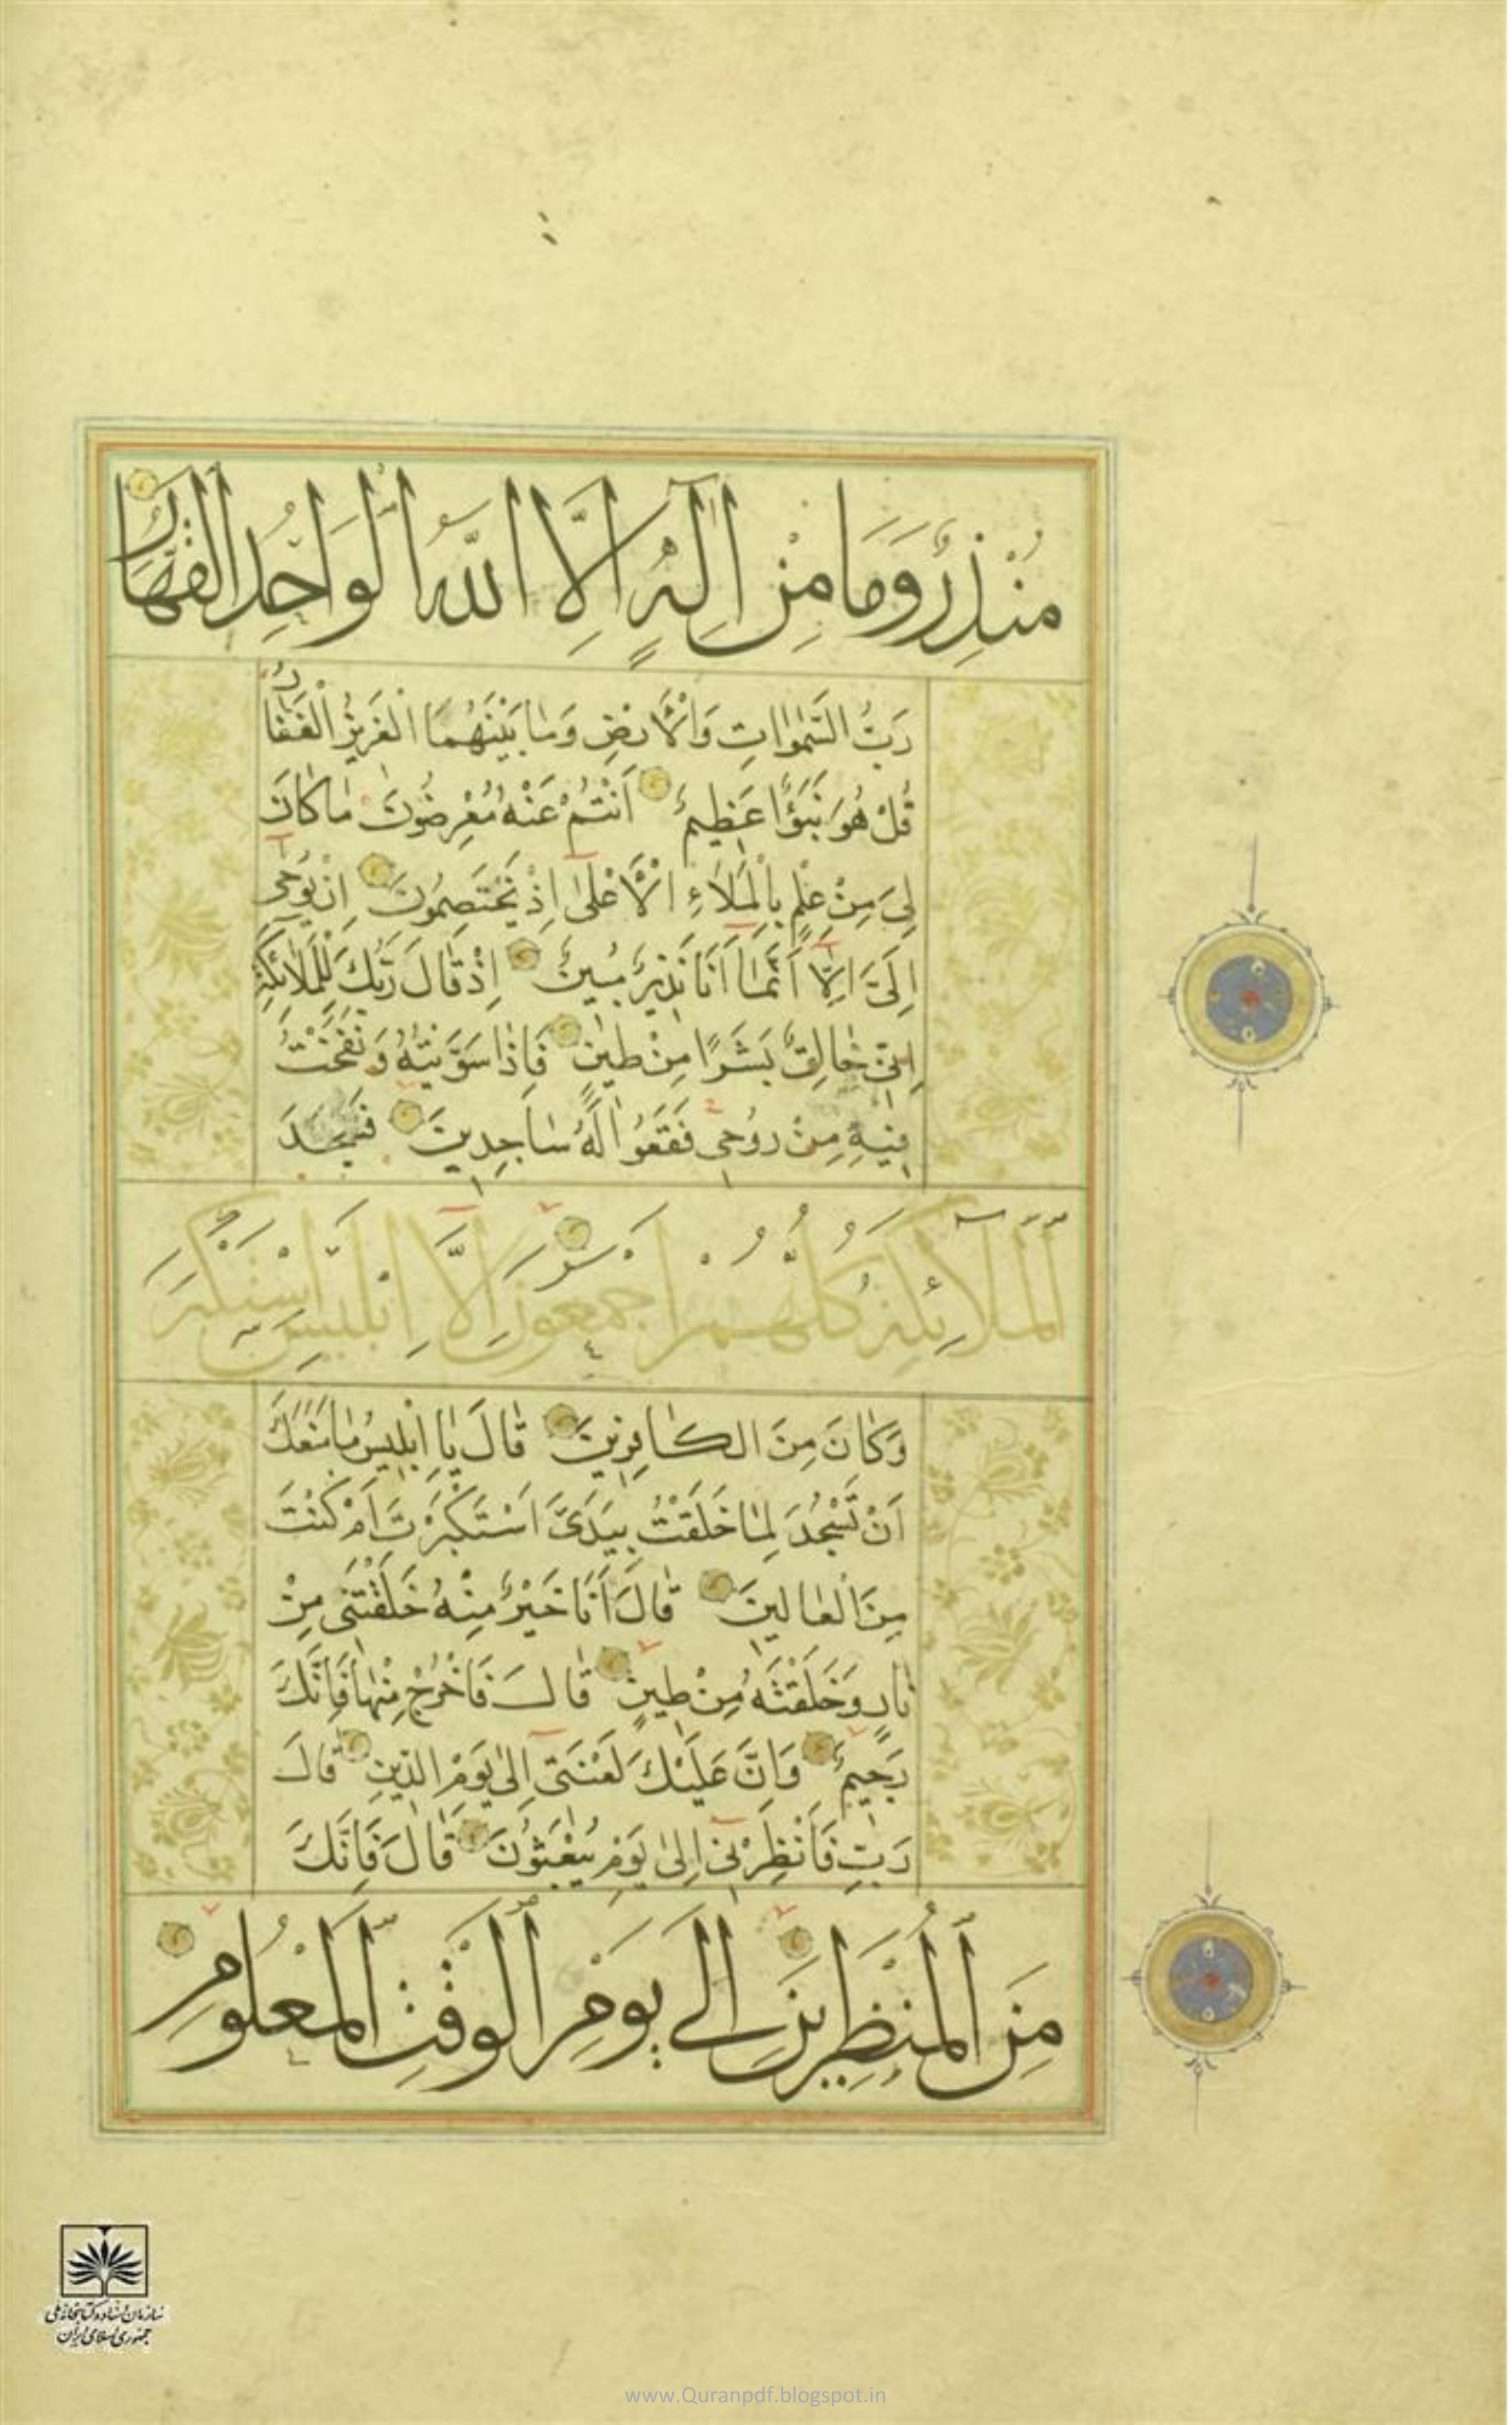 مُنْذِرٌ وَمَا مِنْ اِلٰهٍ اِلَّا اللّٰهُ الْوَاحِدُ الْقَهَّارُ
رَبُّ السَّمٰوَاتِ وَالْاَرْضِ وَمَا بَيْنَهُمَا الْعَزِيزُ الْغَفَّارُ
قُلْ هُوَ نَبَؤٌا عَظِيمٌ اَنْتُمْ عَنْهُ مُعْرِضُونَ مَا كَانَ
لِىَ مِنْ عِلْمٍ بِالْمَلَاءِ الْاَعْلٰى اِذْ يَخْتَصِمُونَ اِنْ يُوحٰى
اِلَىَّ اِلَّا اَنَّمَا اَنَا نَذِيرٌ مُبِينٌ اِذْ قَالَ رَبُّكَ لِلْمَلَائِكَةِ
اِنِّى خَالِقٌ بَشَرًا مِنْ طِينٍ فَاِذَا سَوَّيْتُهُ وَنَفَخْتُ
فِيهِ مِنْ رُوحِى فَقَعُوا لَهُ سَاجِدِينَ فَسَجَدَ
الْمَلَائِكَةُ كُلُّهُمْ اَجْمَعُونَ اِلَّا اِبْلِيسَ اسْتَكْبَرَ
وَكَانَ مِنَ الْكَافِرِينَ قَالَ يَا اِبْلِيسُ مَا مَنَعَكَ
اَنْ تَسْجُدَ لِمَا خَلَقْتُ بِيَدَىَّ اَسْتَكْبَرْتَ اَمْ كُنْتَ
مِنَ الْعَالِينَ قَالَ اَنَا خَيْرٌ مِنْهُ خَلَقْتَنِى مِنْ
نَارٍ وَخَلَقْتَهُ مِنْ طِينٍ قَالَ فَاخْرُجْ مِنْهَا فَاِنَّكَ
رَجِيمٌ وَاِنَّ عَلَيْكَ لَعْنَتِى اِلٰى يَوْمِ الدِّينِ قَالَ
رَبِّ فَاَنْظِرْنِى اِلٰى يَوْمِ يُبْعَثُونَ قَالَ فَاِنَّكَ
مِنَ الْمُنْظَرِينَ اِلٰى يَوْمِ الْوَقْتِ الْمَعْلُومِ
سازمان اسناد و کتابخانه ملی
جمهوری اسلامی ایران
www.Quranpdf.blogspot.in